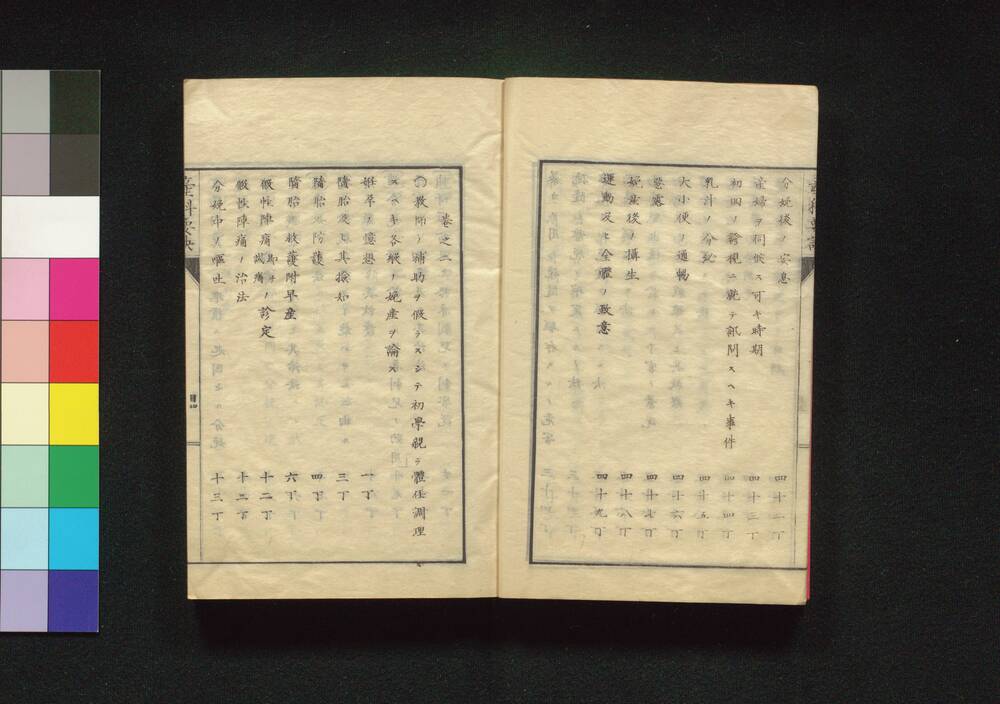 分娩後ノ安息 四十二丁
産婦ヲ伺候ス可キ時期 四十三丁
初回ノ診視ニ就テ訊問スヘキ事件 四十四丁
乳汁ノ分泌 四十五丁
大小便ノ通暢 四十六丁
悪露 四十七丁
娩産後ノ攝生 四十八丁
運動及ヒ全軆ノ致意 四十九丁
巻之二
教師ノ補助ヲ假ラスシテ初學親ラ擔任調理
スヘキ各般ノ娩産ヲ論ス
妊孕ノ臆想 一丁
墮胎及ヒ其撿知 三丁
墮胎ノ防護 四丁
墮胎ノ救護附早産 六丁
假性陣痛ノ診定 十二丁
假性陣痛ノ治法 十二丁
分娩中ノ嘔吐 十三丁
産科要訣